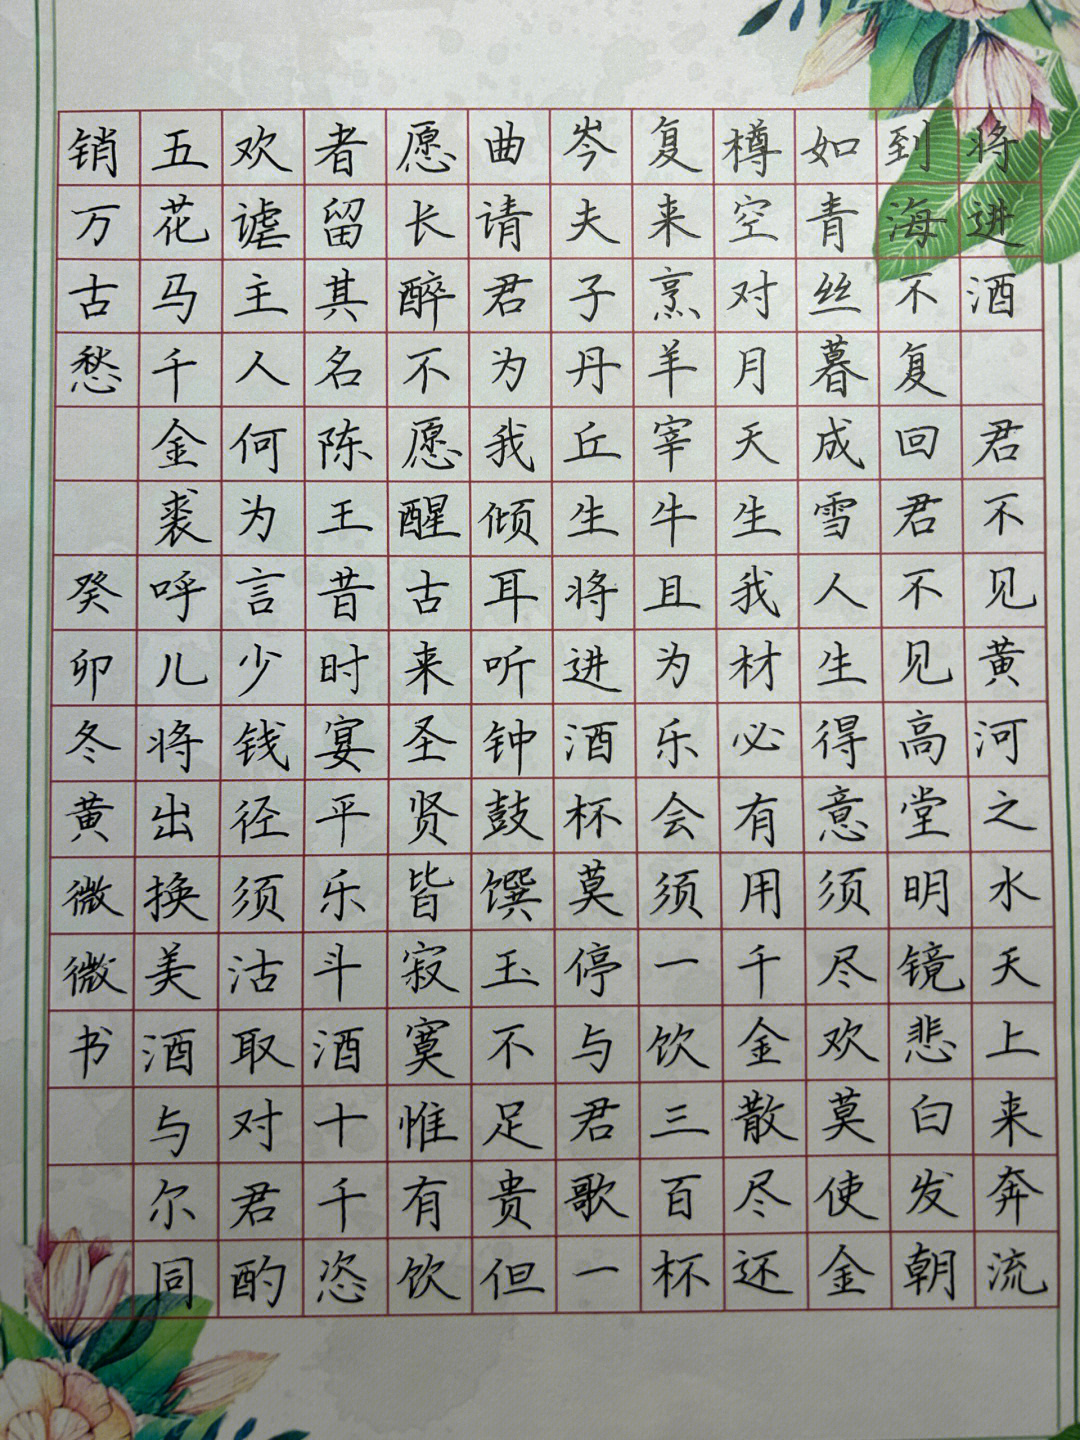 将进酒 君不见黄河之水天上来奔流
到海不复回君不见高堂明镜悲白发朝
如青丝暮成雪人生得意须尽欢莫使金
樽空对月天生我材必有用千金散尽还
复来烹羊宰牛且为乐会须一饮三百杯
岑夫子丹丘生将进酒杯莫停与君歌一
曲请君为我倾耳听钟鼓馔玉不足贵但
愿长醉不愿醒古来圣贤皆寂寞惟有饮
者留其名陈王昔时宴平乐斗酒十千恣
欢谑主人何为言少钱径须沽取对君酌
五花马千金裘呼儿将出换美酒与尔同
销万古愁 癸卯冬黄微微书